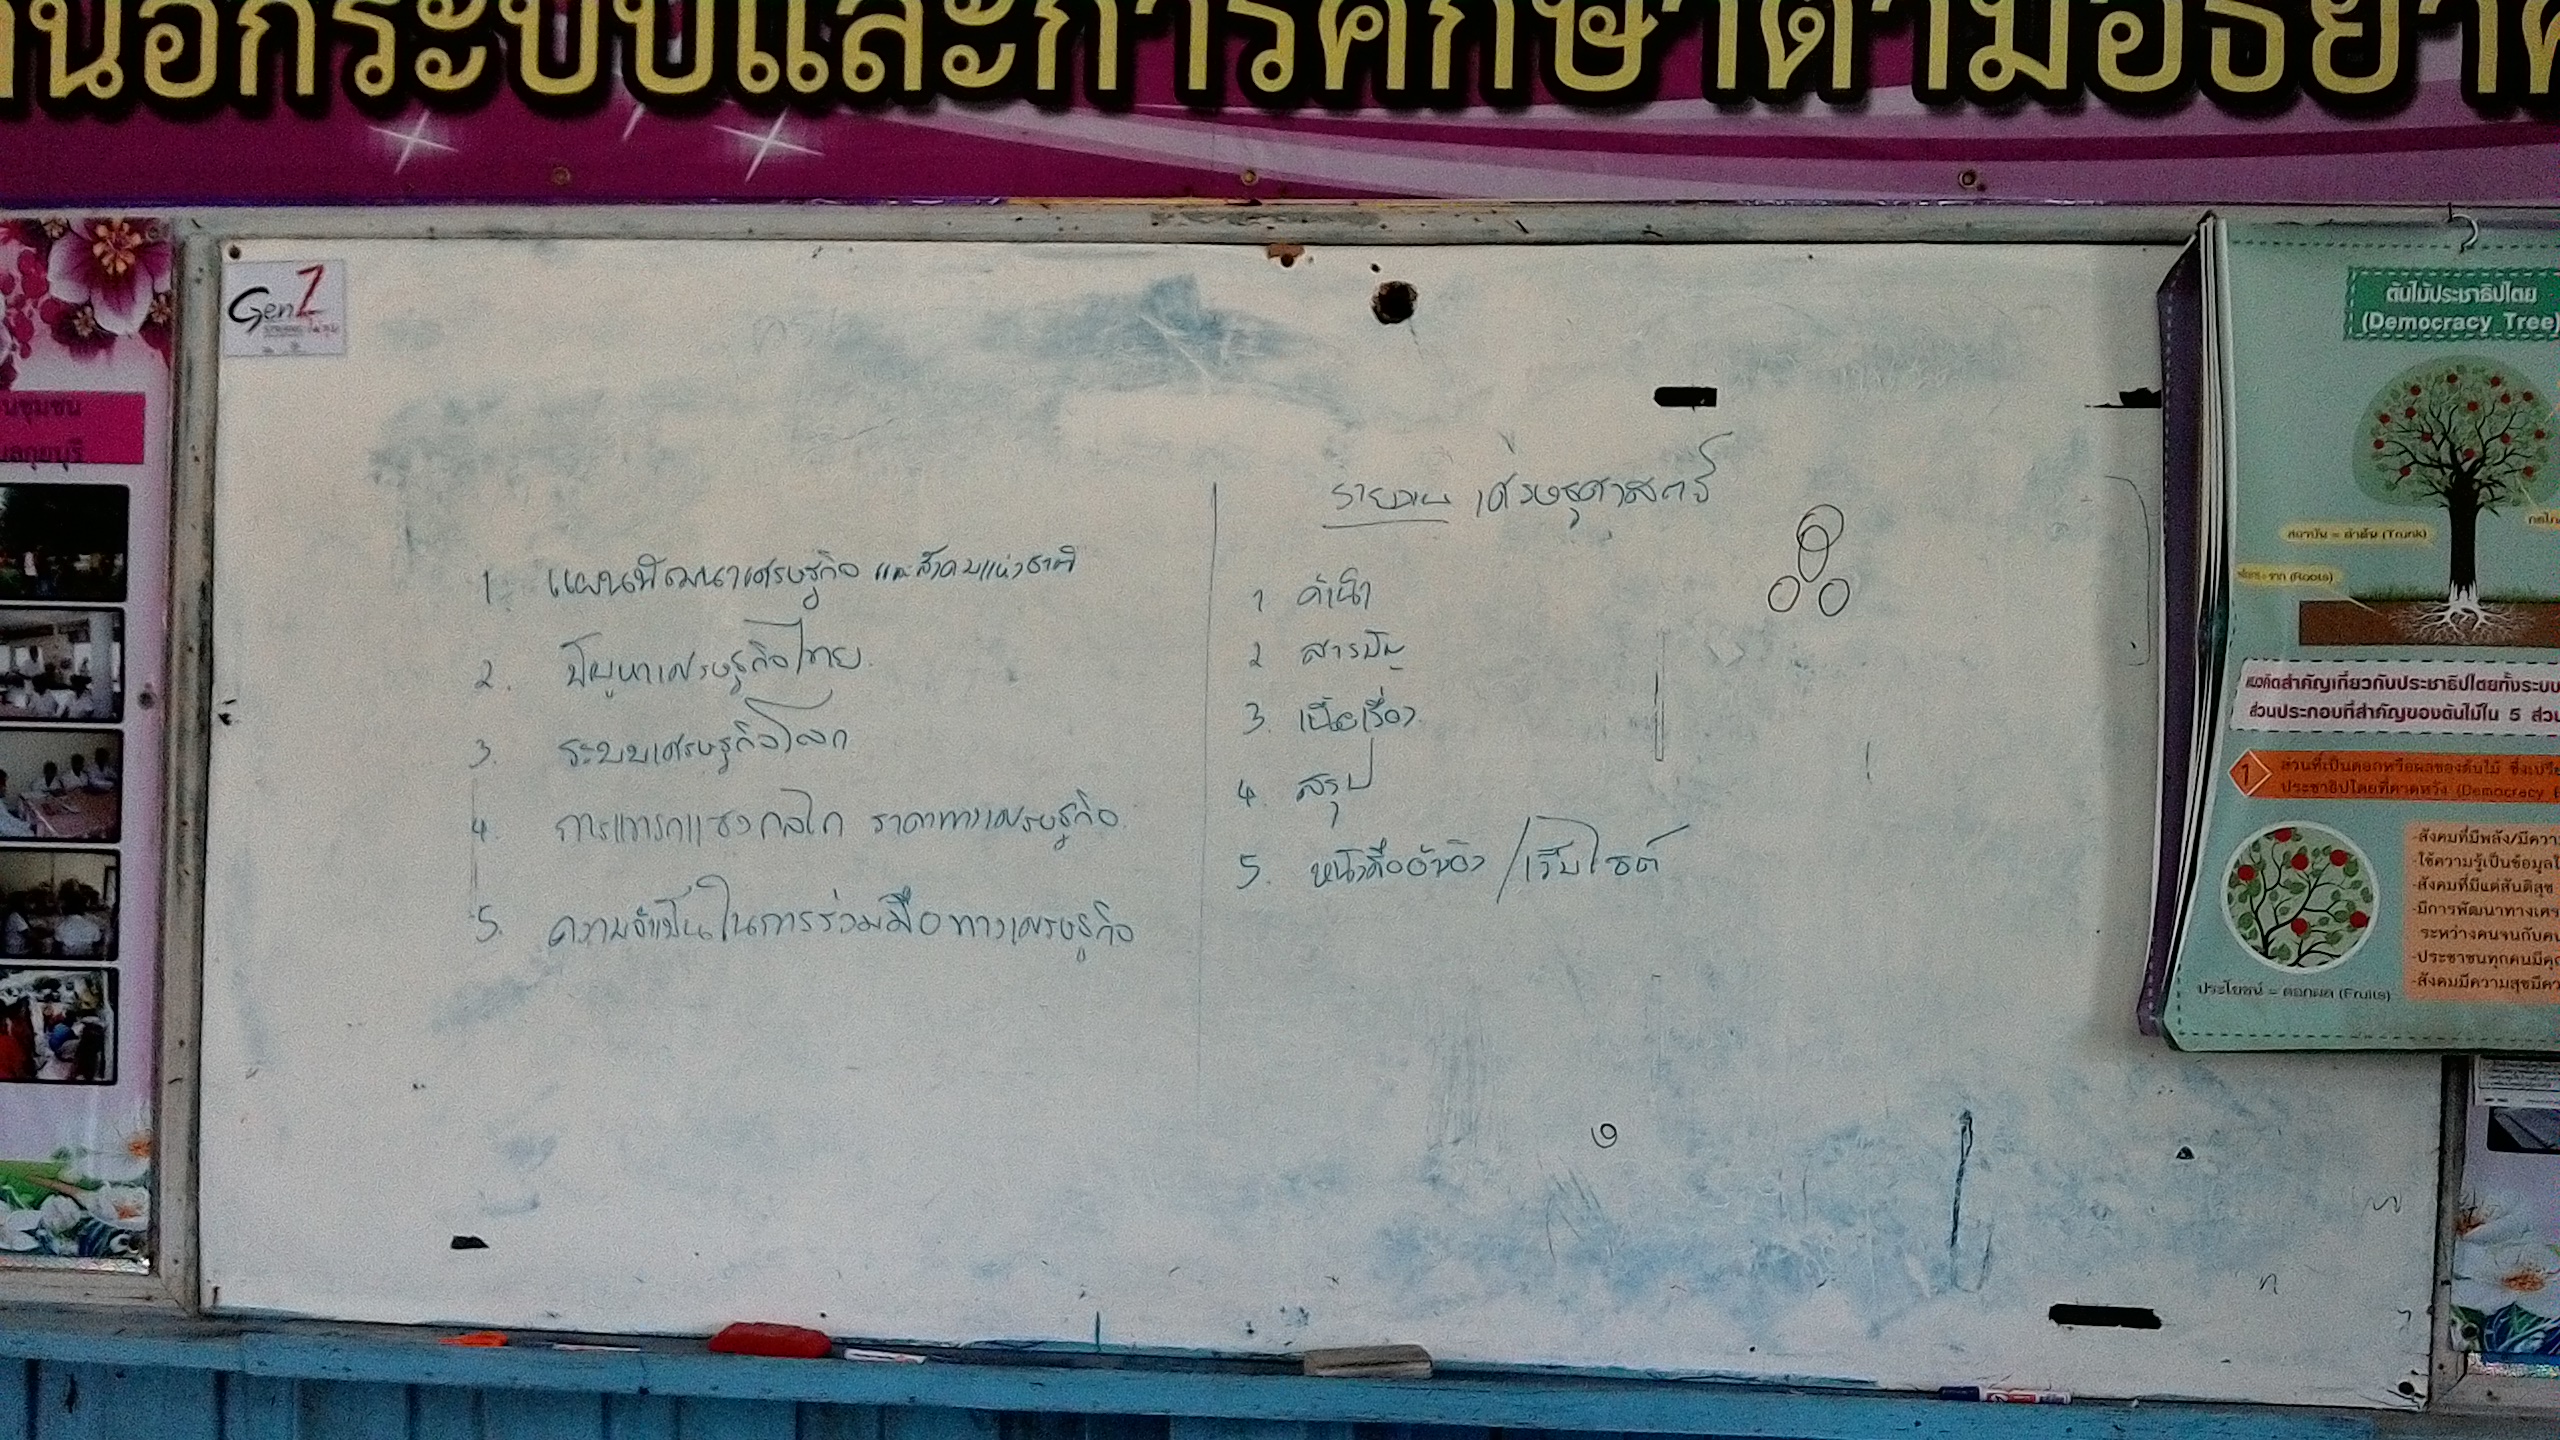 นอกระบบและการศึกษาตามอัธยา
GenZ
ชุมชน
ต้นไม้ประชาธิปไตย
(Democracy Tree)
รายงาน เศรษฐศาสตร์
1 แผนพัฒนาเศรษฐกิจ และสังคมแห่งชาติ
2. ปัญหาเศรษฐกิจไทย.
3. ระบบเศรษฐกิจโลก
4. การแทรกแซงกลไก ราคาทางเศรษฐกิจ
5. ความจำเป็นในการร่วมมือทางเศรษฐกิจ
1 คำนำ
2 สารบัญ
3. เนื้อเรื่อง
4. สรุป
5. หนังสืออ้างอิง / เว็บไซต์
สถาบัน = ลำต้น (Trunk)
ราก (Roots)
แนวคิดสำคัญเกี่ยวกับประชาธิปไตยทั้งระบบ
ส่วนประกอบที่สำคัญของต้นไม้ใน 5 ส่วน
1 ส่วนที่เป็นดอกหรือผลของต้นไม้ ซึ่งเปรีย
ประชาธิปไตยที่คาดหวัง (Democracy
-สังคมที่มีพลัง/มีความ
-ใช้ความรู้เป็นข้อมูลใ
-สังคมที่มีแต่สันติสุข
-มีการพัฒนาทางเศร
ระหว่างคนจนกับคน
-ประชาชนทุกคนมีคุณ
-สังคมมีความสุขมีคว
ประโยชน์ = ดอกผล (Fruits)